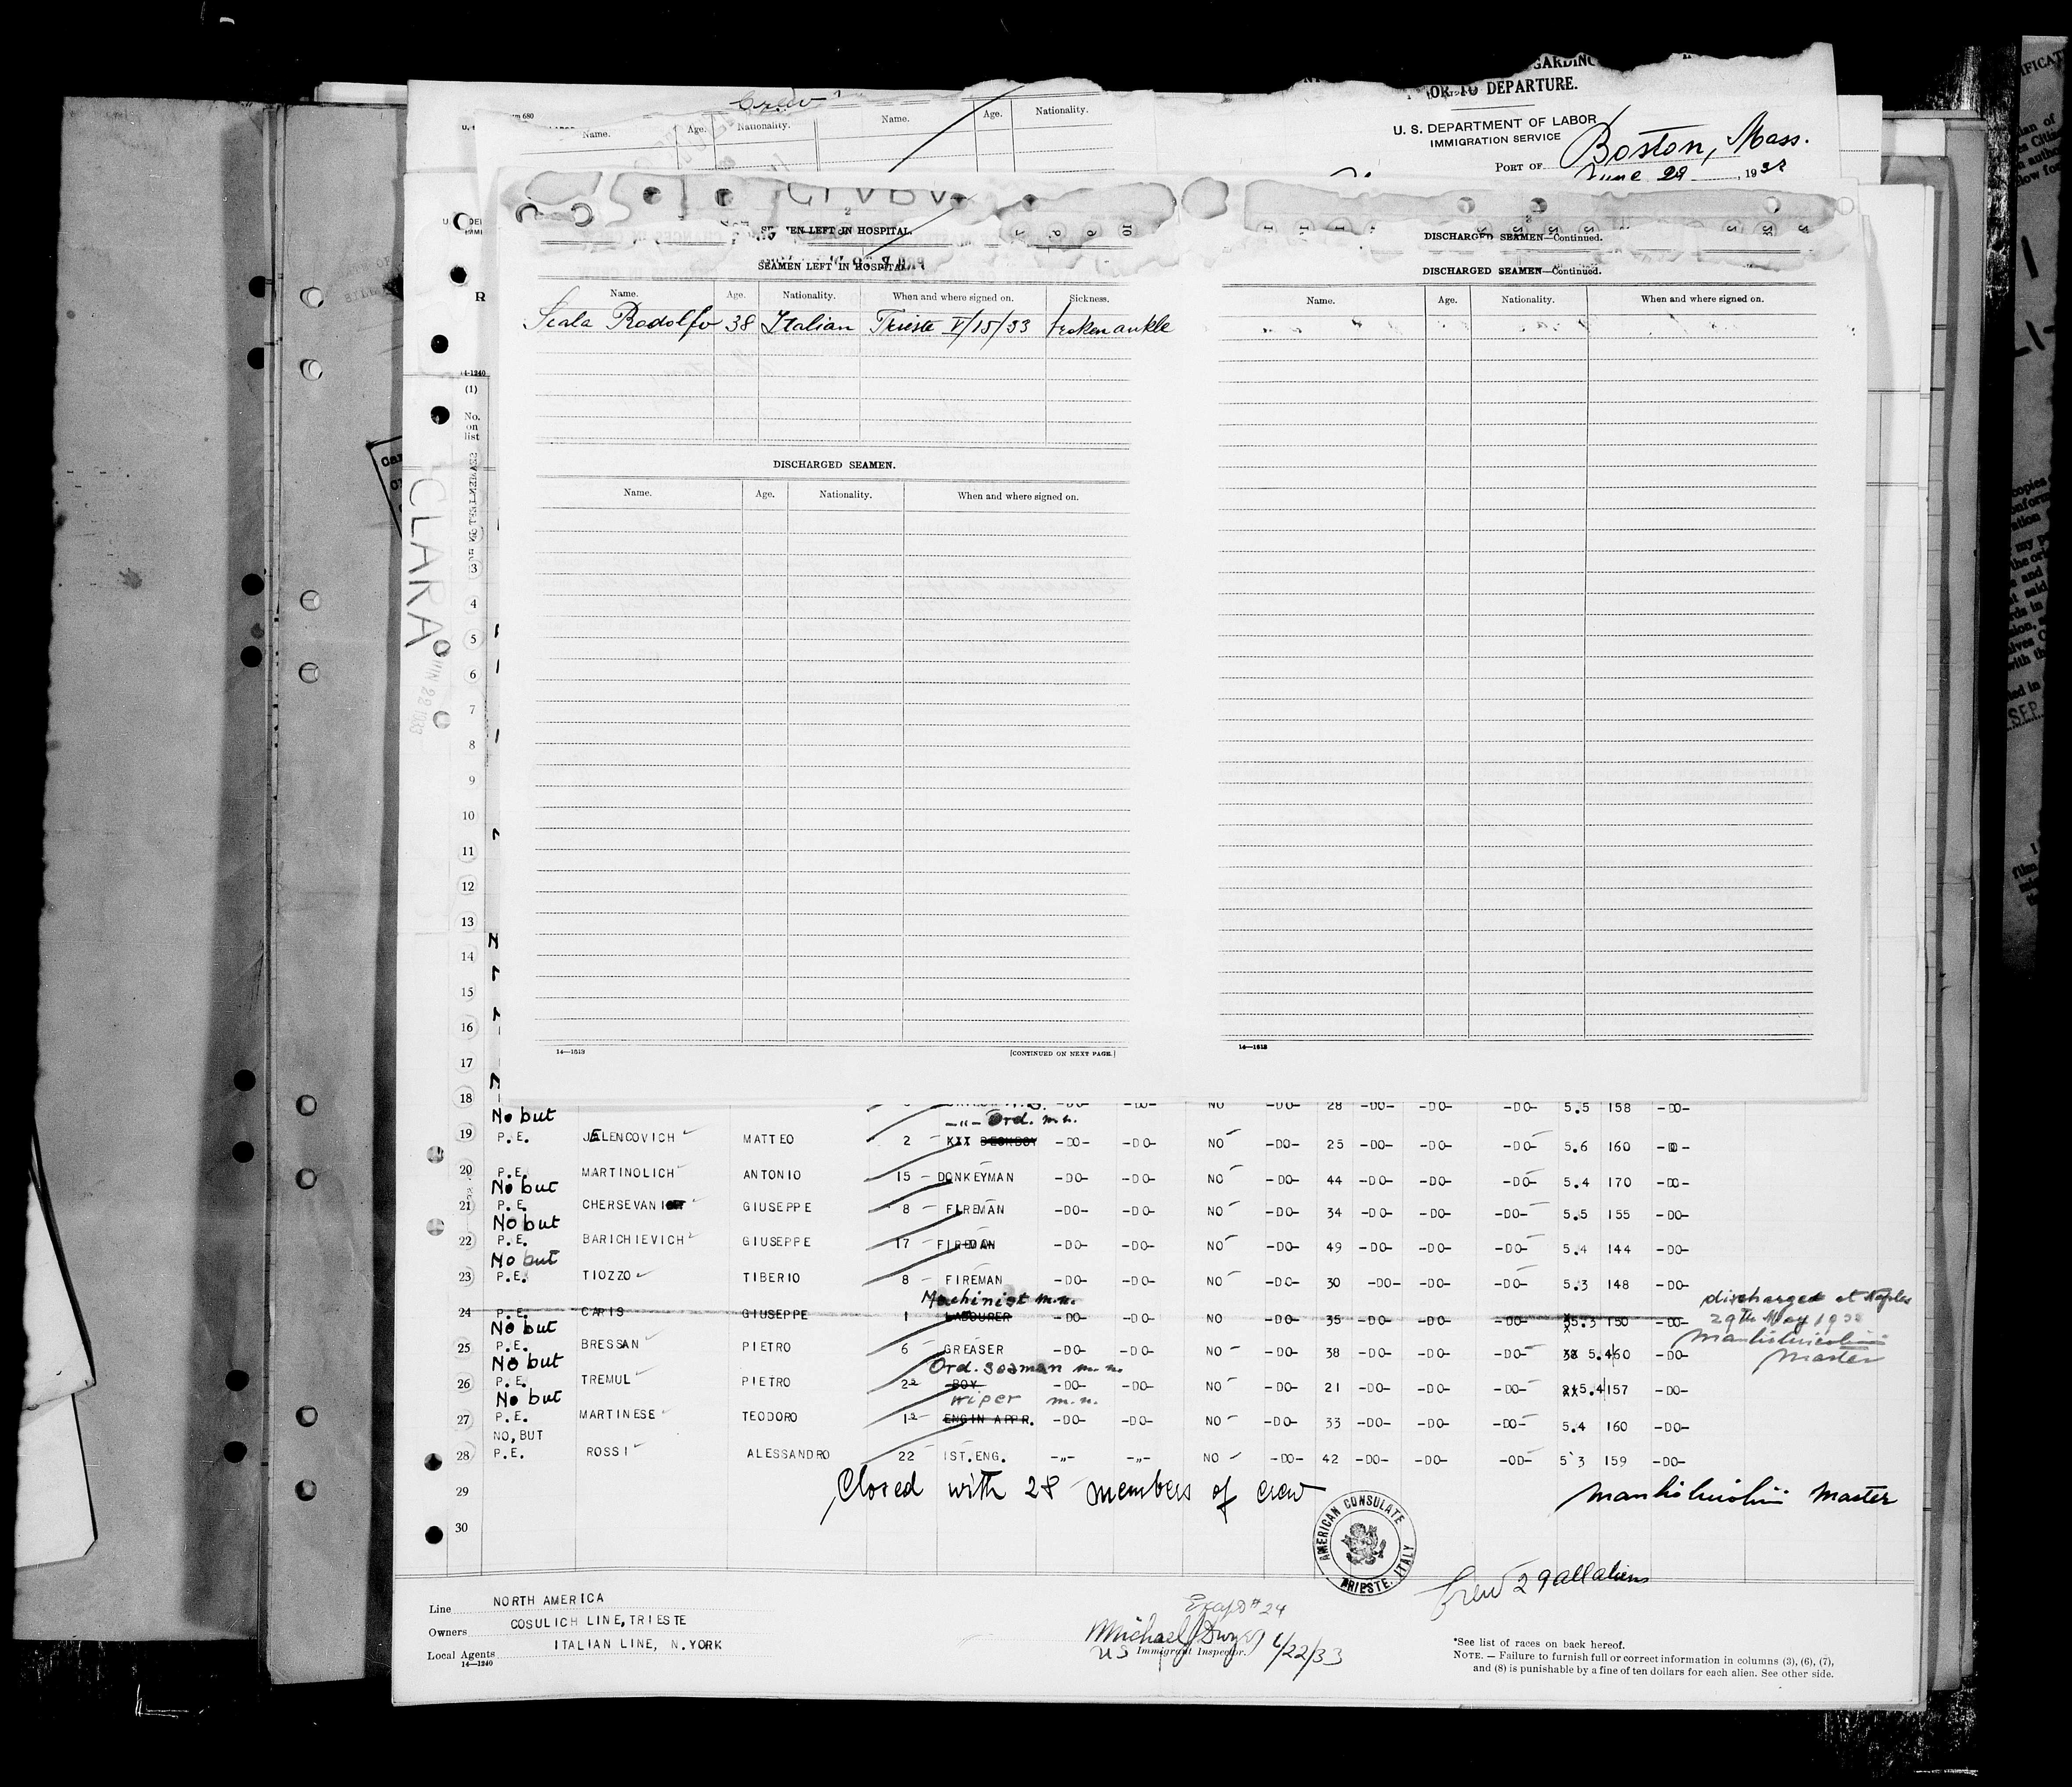 Crew
Name. Age. Nationality. Name. Age. Nationality.
OR TO DEPARTURE.
U. S. DEPARTMENT OF LABOR
IMMIGRATION SERVICE
PORT OF Boston, Mass.
June 29, 193
2
SEAMEN LEFT IN HOSPITAL.
SEAMEN LEFT IN HOSPITAL.
Name. Age. Nationality. When and where signed on. Sickness.
Scala Rodolfo 38 Italian Trieste V/15/33 broken ankle
DISCHARGED SEAMEN.
Name. Age. Nationality. When and where signed on.
14—1513
[CONTINUED ON NEXT PAGE.]
3
DISCHARGED SEAMEN—Continued.
DISCHARGED SEAMEN—Continued.
Name. Age. Nationality. When and where signed on.
14—1513
14-1240
(1)
No.
on
list
CLARA
JUN 29 1933
3
4
5
6
7
8
9
10
11
12
13
14
15
16
17
18 NO -DO- 28 -DO- -DO- -DO- 5.5 158 -DO-
No but -"- Ord. m.n.
19 P.E. JELENCOVICH MATTEO 2 XXX DECKBOY -DO- -DO- NO -DO- 25 -DO- -DO- -DO- 5.6 160 -DO-
20 P.E. MARTINOLICH ANTONIO 15 DONKEYMAN -DO- -DO- NO -DO- 44 -DO- -DO- -DO- 5.4 170 -DO-
No but
21 P.E. CHERSEVANI GIUSEPPE 8 FIREMAN -DO- -DO- NO -DO- 34 -DO- -DO- -DO- 5.5 155 -DO-
No but
22 P.E. BARICHIEVICH GIUSEPPE 17 FIREMAN -DO- -DO- NO -DO- 49 -DO- -DO- -DO- 5.4 144 -DO-
No but
23 P.E. TIOZZO TIBERIO 8 FIREMAN -DO- -DO- NO -DO- 30 -DO- -DO- -DO- 5.3 148 -DO-
Machinist m.n.
24 P.E. CARIS GIUSEPPE 1 LABOURER -DO- -DO- NO -DO- 35 -DO- -DO- -DO- 5.3 150 -DO- discharged at Naples
29th May 193
Master
No but
25 P.E. BRESSAN PIETRO 6 GREASER -DO- -DO- NO -DO- 38 -DO- -DO- -DO- 5.4 60 -DO-
No but Ord. seaman m.n.
26 P.E. TREMUL PIETRO 2 BOY -DO- -DO- NO -DO- 21 -DO- -DO- -DO- 5.4 157 -DO-
No but wiper m.n.
27 P.E. MARTINESE TEODORO 1 ENGIN APPR. -DO- -DO- NO -DO- 33 -DO- -DO- -DO- 5.4 160 -DO-
NO,BUT
28 P.E. ROSSI ALESSANDRO 22 IST.ENG. -"- -"- NO -DO- 42 -DO- -DO- -OD- 5 3 159 -DO-
29 Closed with 28 members of crew Master
30
AMERICAN CONSULATE
TRIESTE, ITALY
Crew 29 all aliens
Line NORTH AMERICA
Owners COSULICH LINE,TRIESTE
Local Agents ITALIAN LINE, N.YORK
14—1240
Except #24
Michael J Dwyer 6/22/33
US Immigrant Inspector.
*See list of races on back hereof.
NOTE. — Failure to furnish full or correct information in columns (3), (6), (7),
and (8) is punishable by a fine of ten dollars for each alien. See other side.